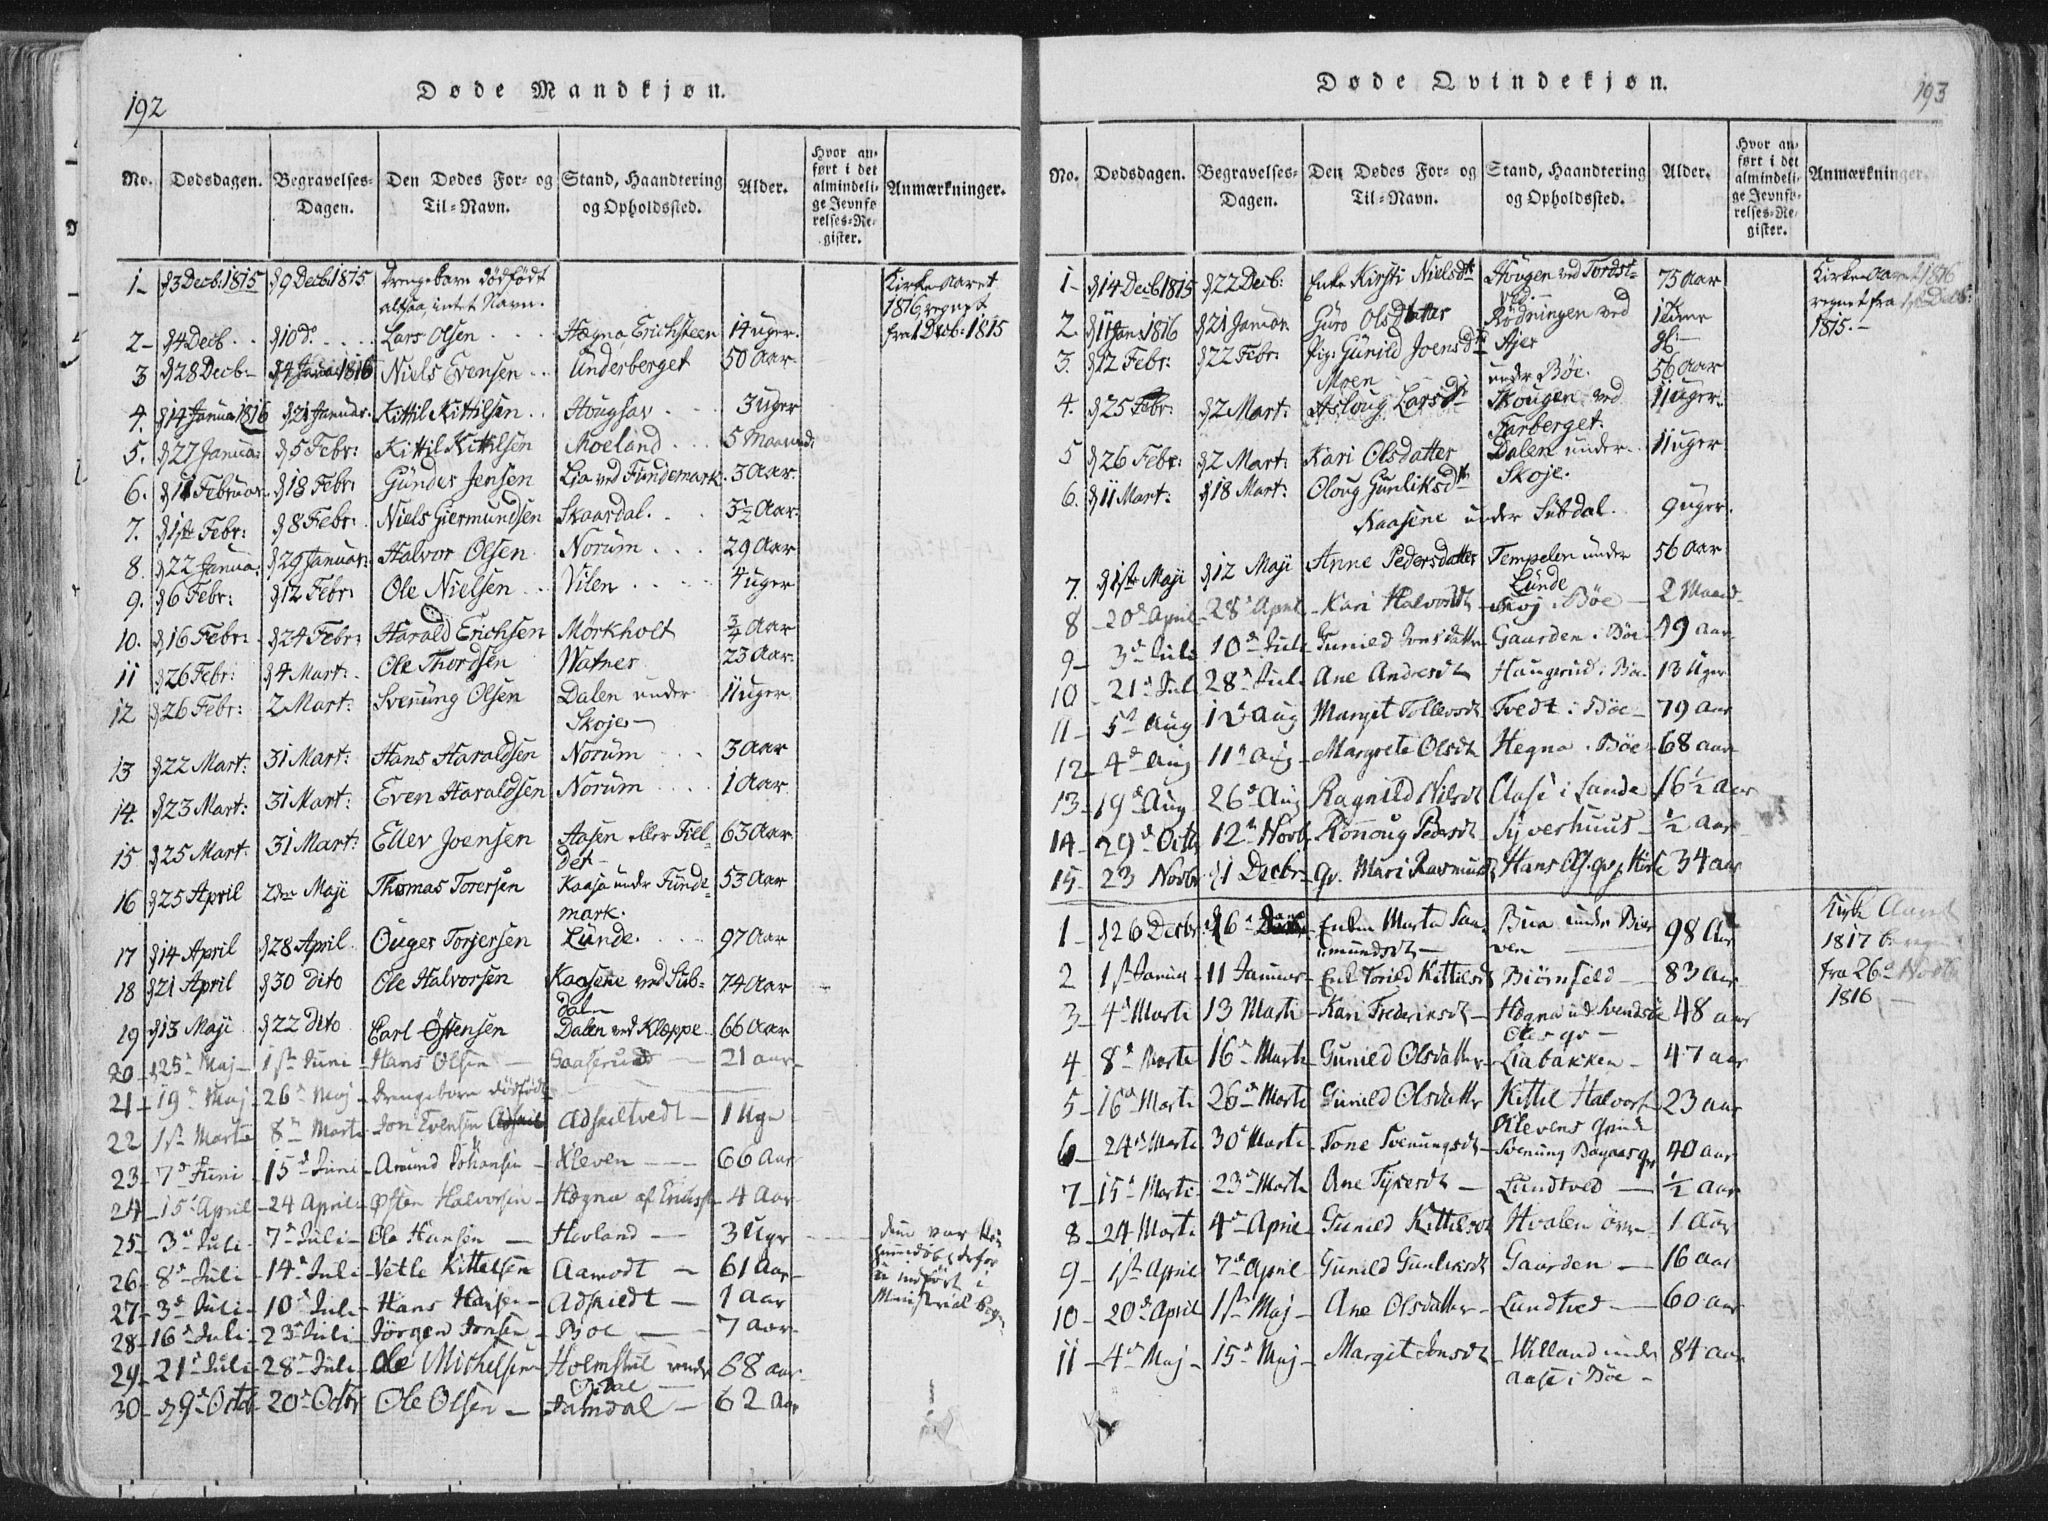 192
Døde Mandkjøn.
No. Dødsdagen. Begravelses-Dagen. Den Dødes For- og Til-Navn. Stand, Haandtering og Opholdssted. Alder. Hvor anført i det almindelige Jevnførelses-Register. Anmærkninger.
1- d 3 Decb: 1815 d 9 Decb: 1815 Drengebarn dödfödt Kirke Aaret
altsaa intet Navn. 1816 regnet
2- d 4 Decb d 10 do Lars Olsen Hægna Erichsteen 14 uger. fra 1 Decb: 1815
3 d 28 Decb- d 4 Janua 1816 Niels Evensen Underberget 50 Aar
4. d 14 Janua 1816 d 21 Januar. Kittil Kittilsen Hougsav 3 uger
5. d 27 Janua: d 5 Febr: Kittil Kittilsen Moeland 5 Maaned:
6. d 11 Februar. d 18 Febr: Gunder Jensen Lia ved Fundemark. 3 Aar.
7. d 1ste Febr: d 8 Febr: Niels Giermundsen Skaardal. 3½ Aar.
8. d 22 Janua: d 29 Januar: Halvor Olsen Norum 29 Aar
9. d 6 Febr: d 12 Febr: Ole Nielsen Vilen 4 uger
10. d 16 Febr: d 24 Febr: Harald Erichsen Mörkholt ¾ Aar
11 d 26 Febr: d 4 Mart: Ole Thordsen Watner 23 Aar.
12 d 26 Febr: 2 Mart: Svenung Olsen Dalen under 11 uger.
Skoje
13 d 22 Mart: 31 Mart: Hans Haraldsen Norum 3 Aar
14. d 23 Mart: 31 Mart: Even Haraldsen Norum 1 Aar.
15 d 25 Mart: 31 Mart: Ellev Joensen Aasen eller Fiel- 63 Aar
det-
16 d 25 April 2den Maji Thomas Torersen Kaasa under Funde- 53 Aar
mark.
17 d 14 April d 28 April Ouger Torjersen Lunde 97 Aar
18 d 21 April d 30 dito Ole Halvorsen Kaasene ved Sub- 74 Aar
dalen
19 d 13 Maji d 22 dito Carl Östensen Dalen ved Klæppe 66 Aar
20- d 25d Maj- 1st Juni- Hans Olsen - Gaaserud - 21 aar-
21- 19d Maj- 26d Maj- Drengebarn dödfödt
22 1st Martii 8d Marti Jon Evensen Adskiltvedt- 1 Uge
23- 7d Juni 15d Juni Amund Johansen Kleven 66 Aar
24- 15d April- 24 April- Østen Halvorsen- Hægna af Erichst- 4 Aar-
25- 3d Juli- 7d Juli- Ole Hansen - Hovland - 3 Ugr Den var
26- 8d Juli- 14d Juli- Vetle Kittelsen Aamodt - 61 Aar- indført i
27- 3d Juli- 10d Juli- Hans Hansen- Adskiltdt - 1 Aar Ministerial Bogn
28- 16d Juli- 23d Juli- Jörgen Jonsen- Boe - 7 aar-
29- 21d Juli- 28d Juli- Ole Michelsen- Holmstul under 68 aar
30- d 9d Octob- 20d Octbr Ole Olsen - Jamdal - 62 Aar
Døde Qvindekjøn.
193
No. Dødsdagen. Begravelses-Dagen. Den Dødes For- og Til-Navn. Stand, Haandtering og Opholdssted. Alder. Hvor anført i det almindelige Jevnførelses-Register. Anmærkninger.
1- d 14 Decb 1815 d 22 Decb: Enke Kirsti Nielsdt Hougen ved Tordst- 75 Aar Kirke Aaret 1816
2. d 11 Jan 1816 d 21 Januar. Guro Olsdatter Rödningen ved regnet fra 1ste Decb:
3. d 12 Febr: d 22 Febr: Pig: Gunild Joensdt Ajer 1815.-
Moen under Böe. 56 Aar
4. d 25 Febr: d 2 Mart: Asloug Larsdt Skougen ved 11 uger.
Tarberget.
5 d 26 Febr: d 2 Mart: Kari Olsdatter Dalen under 11 uger
Skoje.
6. d 11 Mart: d 18 Mart: Oloug Gunliksdt
Kaasene under Subdal. 9 uger
7. d 1ste Maji d 12 Maji Anne Pedersdatter Tempelen under 56 Aar
Lunde
8 - 20d April- 28d April- Kari Halvorsdt- Skoj i Böe - 2 Maand-
9- 3d Juli 10d Juli Gunild Jonsdatter Gaarden i Böe- 49 Aar
10 - 21d Juli 28d Juli Ane Andresdt Haugerud i Böe- 13 Uger
11- 5d Aug 12d Aug Margit Tollevsdt Tvedt i Böe- 79 Aar
12- 4d Aug 11d Aug- Margrete Olsdt Hegna i Böe- 68 aar
13- 19d Aug 26d Aug Ragnild Nilsdt Aase i Lunde 16½ Aar
14- 29d Octb 12d Novb Ronnoug Pedersdt Syverhuus- ½ Aar
15- 23 Novbr d 1 Decbr- Gv. Mari Rasmusdt Hans 34 aar
1- d 26 Decbr d 6d Enken Marte Saa- Bua under Bier 98 Aar Kirke Aaret
mundsdt- ven 1817 beregn
2 1st Januar- 11 Januar- Enk Torild Kittilsdt Biörnfeld- 83 Aar fra 26d Novbr
3- 4d Marti 13 Marti- Kari Frederiksdt- Hægna 48 aar 1816-
4 8d Marti 16d Marti Gunild Olsdatter- Liabakken- 47 aar
5- 16d Marti 26d Marti Gunild Olsdatter Kittil Halvors 23 aar
Klevens qvinde
6- 24d Marti 30d Marti- Tone Svenungsdt- Svenung 40 Aar
7- 15d Marti- 23d Marti Ane - Lundtved - ½ Aar
8- 24 Marti 4d April- Gunild Kittilsdt Hvalen övr- 1 Aar
9- 1st April 7d April- Gunild Gunliksdt Gaarden - 16 aar
10- 20d April 1st Maj- Ane Olsdatter- Lundtved- 60 Aar
11- 4d Maj- 15d Maj- Margit Jonsdt- Willand under 84 aar
Aase i Böe-